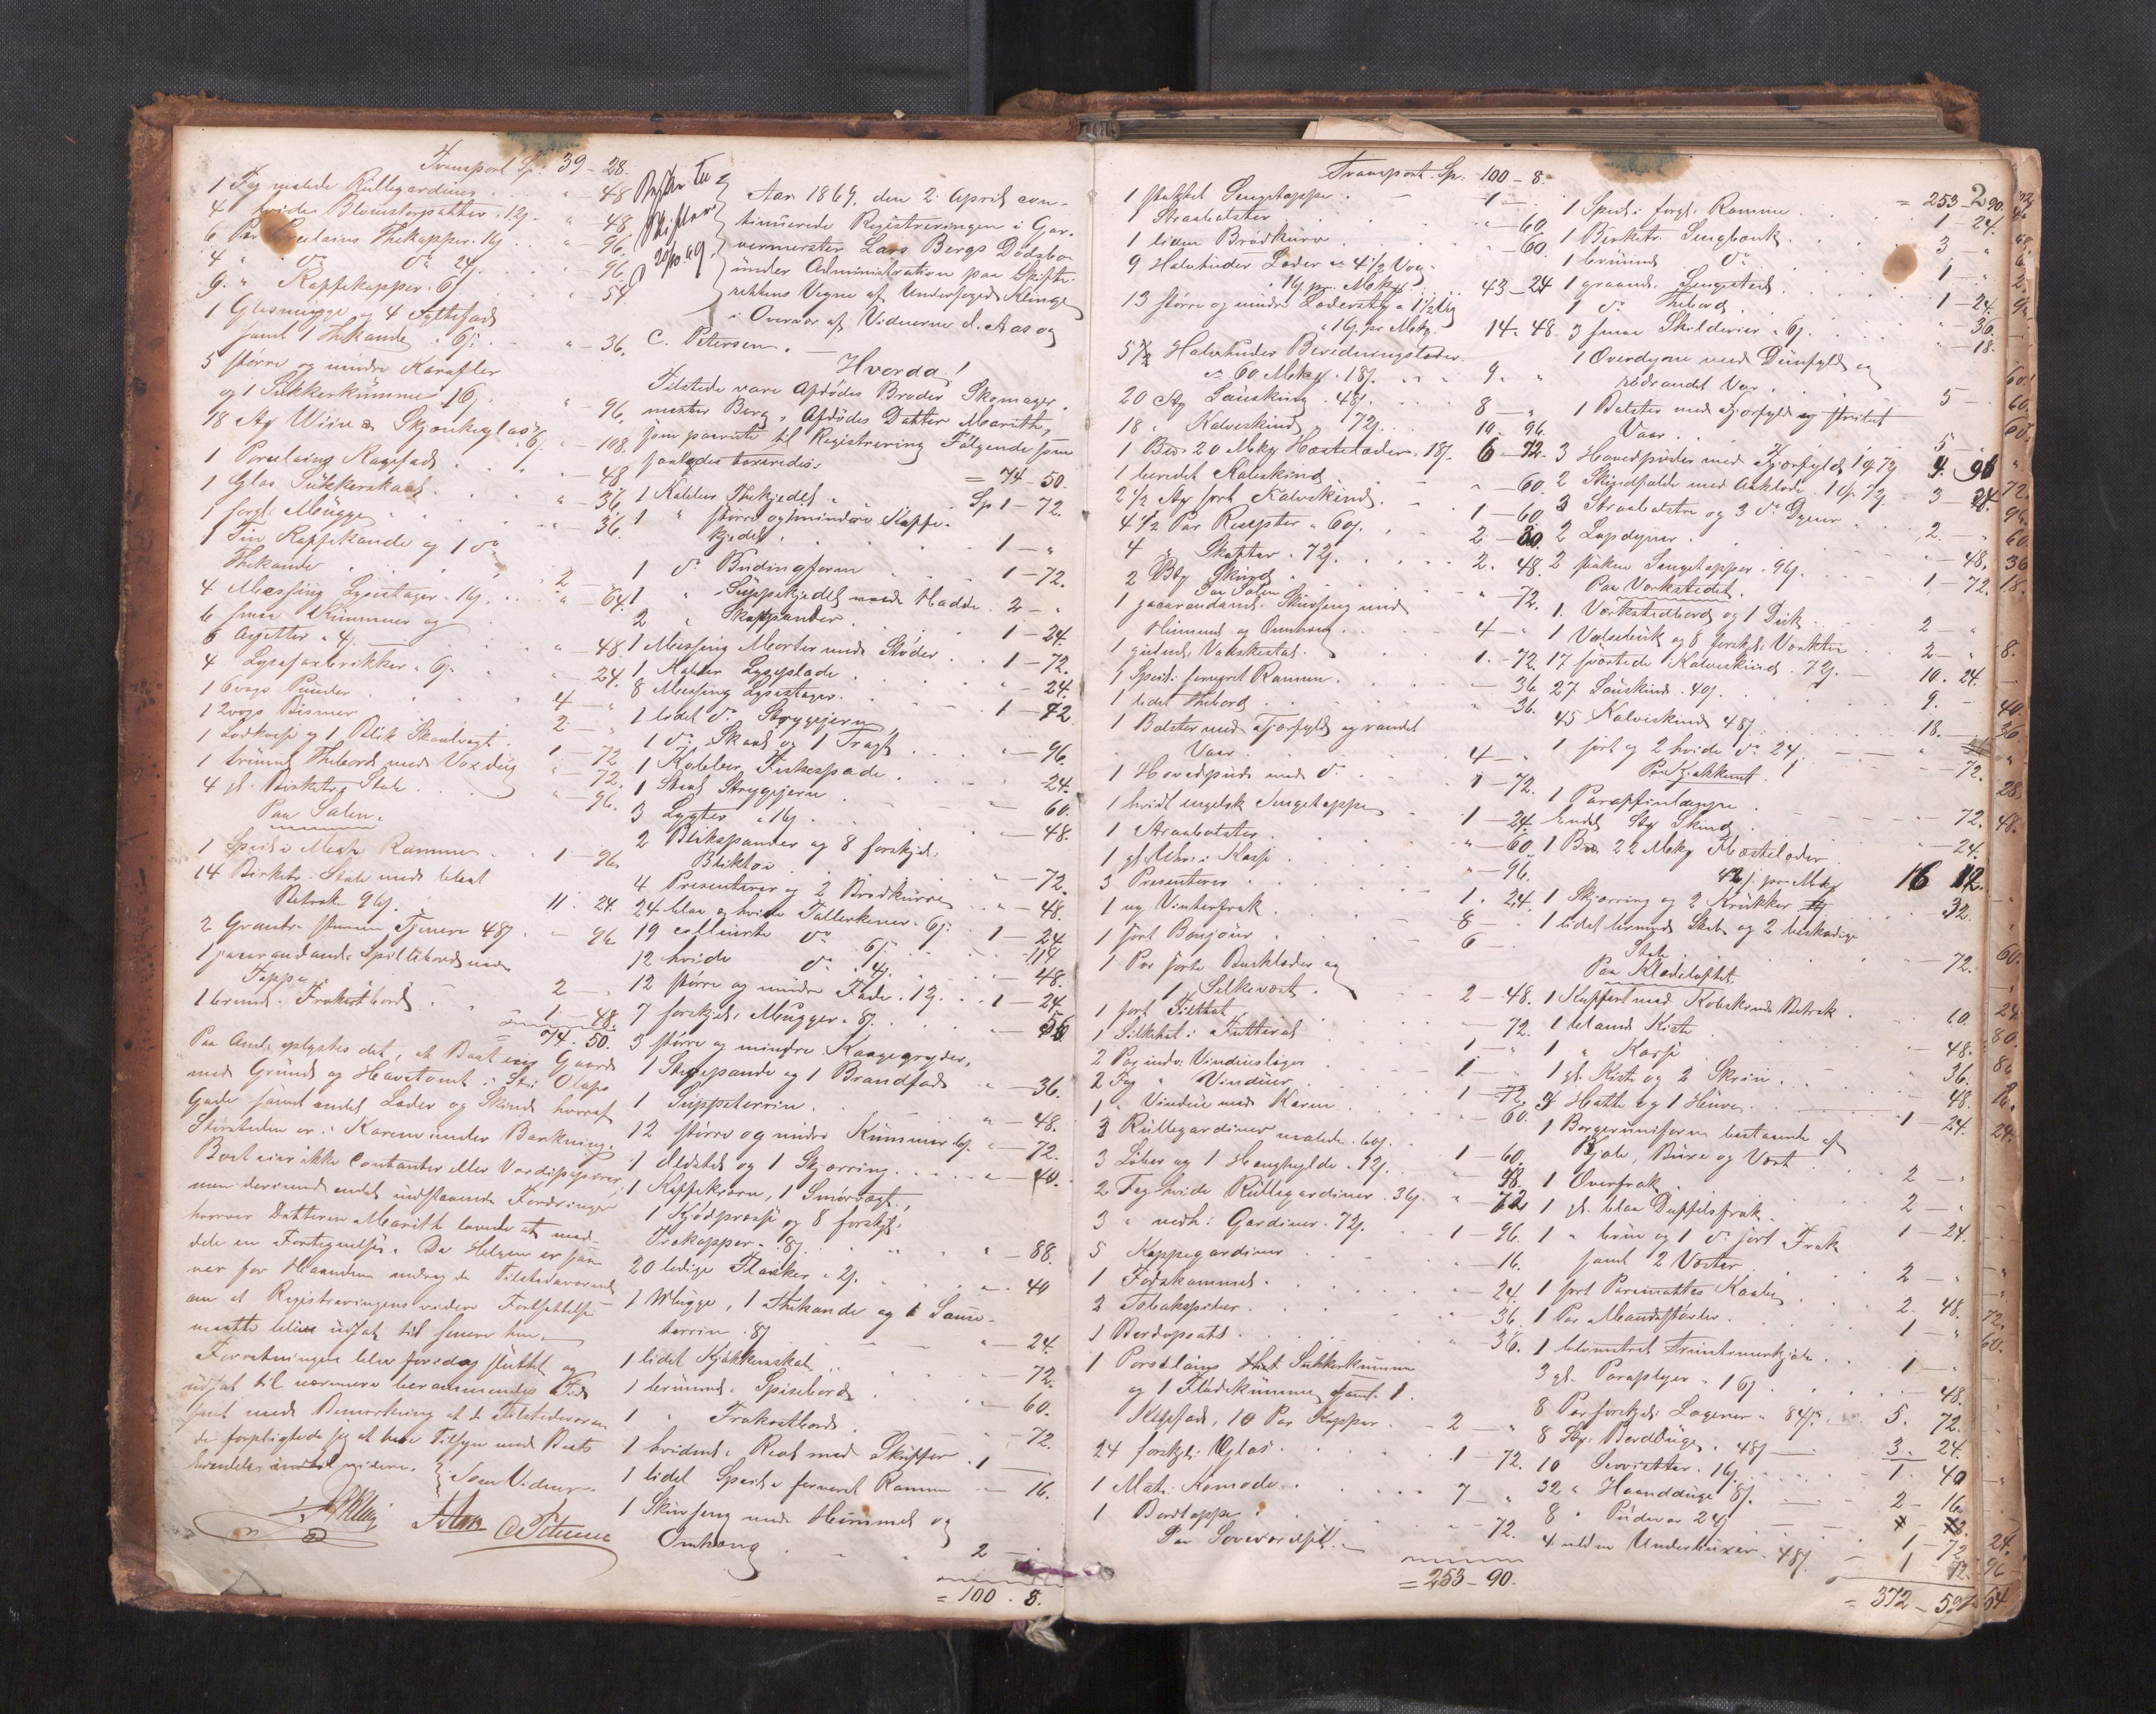 Transport Sp. 39 - 28.
1 Fag malede Rullegardiner . . " 48
4 hvide Blomsterpotter . 12 . " 48.
6 Par Porcelains Thekopper . 16 . " 96.
4 " do do 24 . . " 96.
9. " Kaffekopper . 6 . . " 54
1 Glasmugge og 4 Syltefad
samt 1 Thekande . 6 . . " - 36.
5 større og mindre Karafler
og 1 Sukkerkumme 16 . " 96.
18 St Wiin & Skjænkeglas 6 . - 108.
1 Porcelains Kagefad . . . " 48
1 Glas Sukkerskaal . . . " 36.
1 forgl. Mugge . . . " 36.
1 Tin Kaffekande og 1 do
Thekande . . . 2 -
4 Messing Lysestager . 16 . . " - 64.
6 smaa Kummer og
6 Asjetter . 4 . - " - 48
4 Lysesaxbrikker . 6 . . " 24.
1 6vogs Punder . . 4 - "
1 2vogs Bismer . . 2 - "
1 Lodkorf og 1 Blik Skaalvegt . 1 - 72
1 brunmt Thebord med Voxdug " - 72.
4 gl. Birketr. Stole . . . " - 96.
Paa Salen.
1 Speil i Mah. Ramme . . 1 - 96.
14 Birketr. Stole med blaat
Betræk 96 . . 11 - 24.
2 Grantr. stumme Tjenere 48 . - 96
1 panerandmt Spillebord med
Teppe . . 2 - .
1 brunmt Frokostbord . . 1 - 48.
= 74 . 50.
Paa Anl. oplystes det, at Boet eier Gaard
med Grund og Havetomt i St: Olafs
Gade samt endel Læder og Skind hvoraf
Størstedelen er i Karene under Barkning.
Boet eier ikke Contanter eller Værdipapirer,
men derimod endel udstaaende Fordringer
hvorover Datteren Marith lovede at med-
dele en Fortegnelse. Da Helgen er saa
nær for Haanden androg de Tilstedeværende
om at Registreringens videre Fortsættelse
maatte blive udsat til senere hen.
Forretningen blev foreløbig sluttet og
udsat til nærmere berammendes Tid
samt med Bemærkning at de Tilstedeværen-
de forpligtede sig at have Tilsyn med Boets
Eiendele indtil videre. Som Vidner
Klinge A Aas C Petersen
Aar 1869, den 2. April con-
tinuerede Registreringen i Gar-
vermester Lars Bergs Dødsbo
under Administration paa Skifte-
rettens Vegne af Underfoged Klinge
i Overvær af Vidnerne A. Aas og
C. Petersen. -
Hvorda!
Tilstede vare Afdødes Broder Skomager-
mester Berg, Afdødes Datter Marith,
som paaviste til Registrering Følgende som
saaledes taxeredes:
= 74 - 50.
1 Kobber Thekjedel . Sp 1 - 72.
1 " større og 1 mindre Kaffe-
kjedel . . . 1 - "
1 do Budingform . . 1 - 72.
1 " Suppekjedel med Hadde . 2 - "
2 " Skappander . . 1 - 24.
1 Messing Morter med Støder . . 1 - 72.
1 Kobber Lyseplade . . " - 24.
8 Messing Lysestager . . 1 - 72
1 lidet do Strygejern,
1 do Skaal og 1 Tragt . . - 96.
1 Kobber Fiskespade . . - 24.
1 Staal Strygejern . . - 60.
3 Lygter . 16 . . - 48.
2 Blikspander og 8 forskjel.
Bliktøi . . - 72.
4 Presenterer og 2 Brødkurve . - 48.
24 blaa og hvide Tallerkener . 6 . 1 - 24.
19 collørte do . 6 . . 114
12 hvide do . 4 . . 48.
12 større og mindre Fade . 12 . 1 - 24.
7 forskjel. Mugger . 8 . . 56
3 større og mindre Kaagegryder,
1 Stegepande og 1 Brandfad . " - 36.
1 Suppeterrin . . " - 48.
12 større og mindre Kummer 6 . " 72.
1 Ildsted og 1 Skjærring . . " - 40.
1 Kaffekværn, 1 Smørvægt,
1 Kjødpresse og 8 forskjl.
Trækopper . 8 . . " - 88.
20 ledige Flasker . 2 . . " 40
1 Mugge, 1 Thekande og 1 Sause-
terrin . 8 . " - 24.
1 lidet Kjøkkenskab . . " - 72.
1 brunmt Spisebord . . " - 60.
1 " Frokostbord . . " 72.
1 hvidmt Reol med Skuffer . 1 -
1 lidet Speil i forneret Ramme - 16.
1 Skinseng med Himmel og
Omhæng . . . 2 - .
= 100 . 8.
Transport Sp. 100 - 8.
1 stukket Sengeteppe . - 1 - .
1 Straabolster . . " - 60.
1 liden Brødkurv . . - 60.
9 Halvhuder Læder a 4½ Vog
a 16 pr. Mk . 43 - 24
13 større og mindre Læderstyk a 1½ Vog
a 16 pr Mk . 14 . 48.
5½ Halvhuder Beredningslæder
a 60 Mk . 18 . . 9. "
20 St Saueskind . 48 . 8 - "
18 " Kalveskind . 72 . 10 . 96.
1 Bd. 20 Mk Hestelæder . 18 . 6 - 72.
1 beredet Kalveskind . . - 60.
2½ St sort Kalveskind . . 1 - 60.
4½ Par Remper . 60 . . 2 - 30.
4 " Skafter . 72 . . 2 . 48.
2 St Skind . . " - 72.
Paa Salen
1 panerandmt Skinseng med
Himmel og Omhæng . . 4 - "
1 gulmt Vaskestol . . 1 - 72.
1 Speil i forneret Ramme . - 36.
1 lidet Thebord . . " 36.
1 Bolster med Fjærfyld og randet
Vaar . . 4 - "
1 Hovedpude med do . . 1 - 72.
1 hvidt engelsk Sengeteppe . 1 - 24.
1 Straabolster . . " - 60.
1 gl. Uhr i Kasse . . " - 96.
3 Presenterer . . 1 . 24.
1 ny Vinterfrak . . 8 -
1 sort Bonjour . . 6 -
1 Par sorte Buxklæder og
1 Silkevest . . 2 - 48.
1 sort Filthat . . - 72.
1 Silkehat i Futteral . . 1 - "
2 Par indv. Vindusslager . . 1 -
2 Fag " Vinduer . . 1 - 72.
1 " Vindue med Karm . . - 60.
3 Rullegardiner malede . 60 . 1 - 60.
3 Løber og 1 Henghylde . 12 . - 48.
2 Fag hvide Rullegardiner . 36 . " 72
3 " nedh: Gardiner . 72 . . 1 - 96.
5 Kappegardiner . . " - 16.
1 Fodskammel . . " - 24.
2 Tobakspiber . . " - 36.
1 Barbersats . . " - 36.
1 Porcelains Sukkerkumme
og 1 Flødekumme samt 1
Kagefad, 10 Par Kopper . 2 - "
24 forskjl. Glas . . 1 - 72.
1 Mah: Komode . . 7 - "
1 Bordteppe . . " - 72.
Paa Soveværelset. -
= 253 - 90.
2
= 253 - 90.
1 Speil i forgl. Ramme . . 1 - 24.
1 Birketr. Sengbænk . . 3 - "
1 brunmt do . . 1 - "
1 graamt Sengested . . 1 - 24.
1 do Thebord . . - 36.
3 smaa Skilderier . 6 . . - 18.
1 Overdyne med Dunfyld og
rødrandet Var . . 5 - .
1 Bolster med Fjærfyld og stribet
Vaar . . 5 - "
3 Hovedpuder med Fjærfyld 1 72 4. 96
2 Skindfelde med Aaklæde . 1 72 . 3 - 24.
3 Straabolstre og 3 do Dyner . 2. - "
2 Lapdyner . . - 48.
2 stukne Sengetepper . 96 . . 1 - 72.
Paa Værkstedet.
1. Værkstedbord og 1 Disk . 2 - "
1 Valsebænk og 8 forskjl. Værktøi . 2 - "
17 sværtede Kalveskind . 72 . - 10 . 24.
27 Saueskind . 40 . . 9. -
45 Kalveskind 48 . 18.
1 sort og 2 hvide do 24 . - 72.
Paa Kjøkkenet.
1 Parafinlampe . . - 72.
Endel St Skind . . - 24.
1 Bd. 22 Mk Hestelæder
42 pr Mk 16 12.
1 Skjærring og 2 Krukker . 32.
1 lidet brunmt Skab og 2 beskadige
Stole . . - 72.
Paa Klædeloftet.
1 Kuffert med Kobskinds Betræk . 60.
1 blaamt Kiste . . - 48.
1 " Kasse . . 36.
1 gl. Kiste og 2 Skrin . . 48.
3 Hatte og 1 Hue . . 1 - 24.
1 Borgeruniform bestaaende af
Kjole, Buxe og Vest . . 2 - .
1 Overfrak . . 2 - "
1 gl. blaa Duffelsfrak . . 1 - 24.
1 " brun og 1 do sort Frak
samt 2 Vester . . 2 - "
1 sort Paramattes Kaabe . . 2. 48.
1 Par Mandsstøvler . . 1 - "
1 blommetret Fruentimmerkjole . 1 - "
3 gl. Paraplyer . 16 . . 48.
8 Par forskjl. Lagener . 84 . . 5. 72.
8 St: Bordduge . 48 - 3. 24.
10 " Servietter . 16 . 1. 40
32 " Haandduge 8 . - 2 - 16.
8 " Pudevar 24 . - 1 - 72.
4 uldne Underbuxer . 48 . - 1 - 72.
= 372 - 59